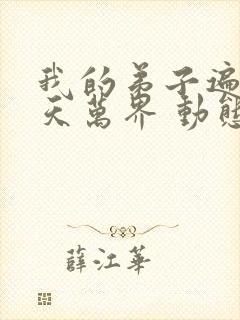 我的弟子遍
天萬界 動態
薛江華